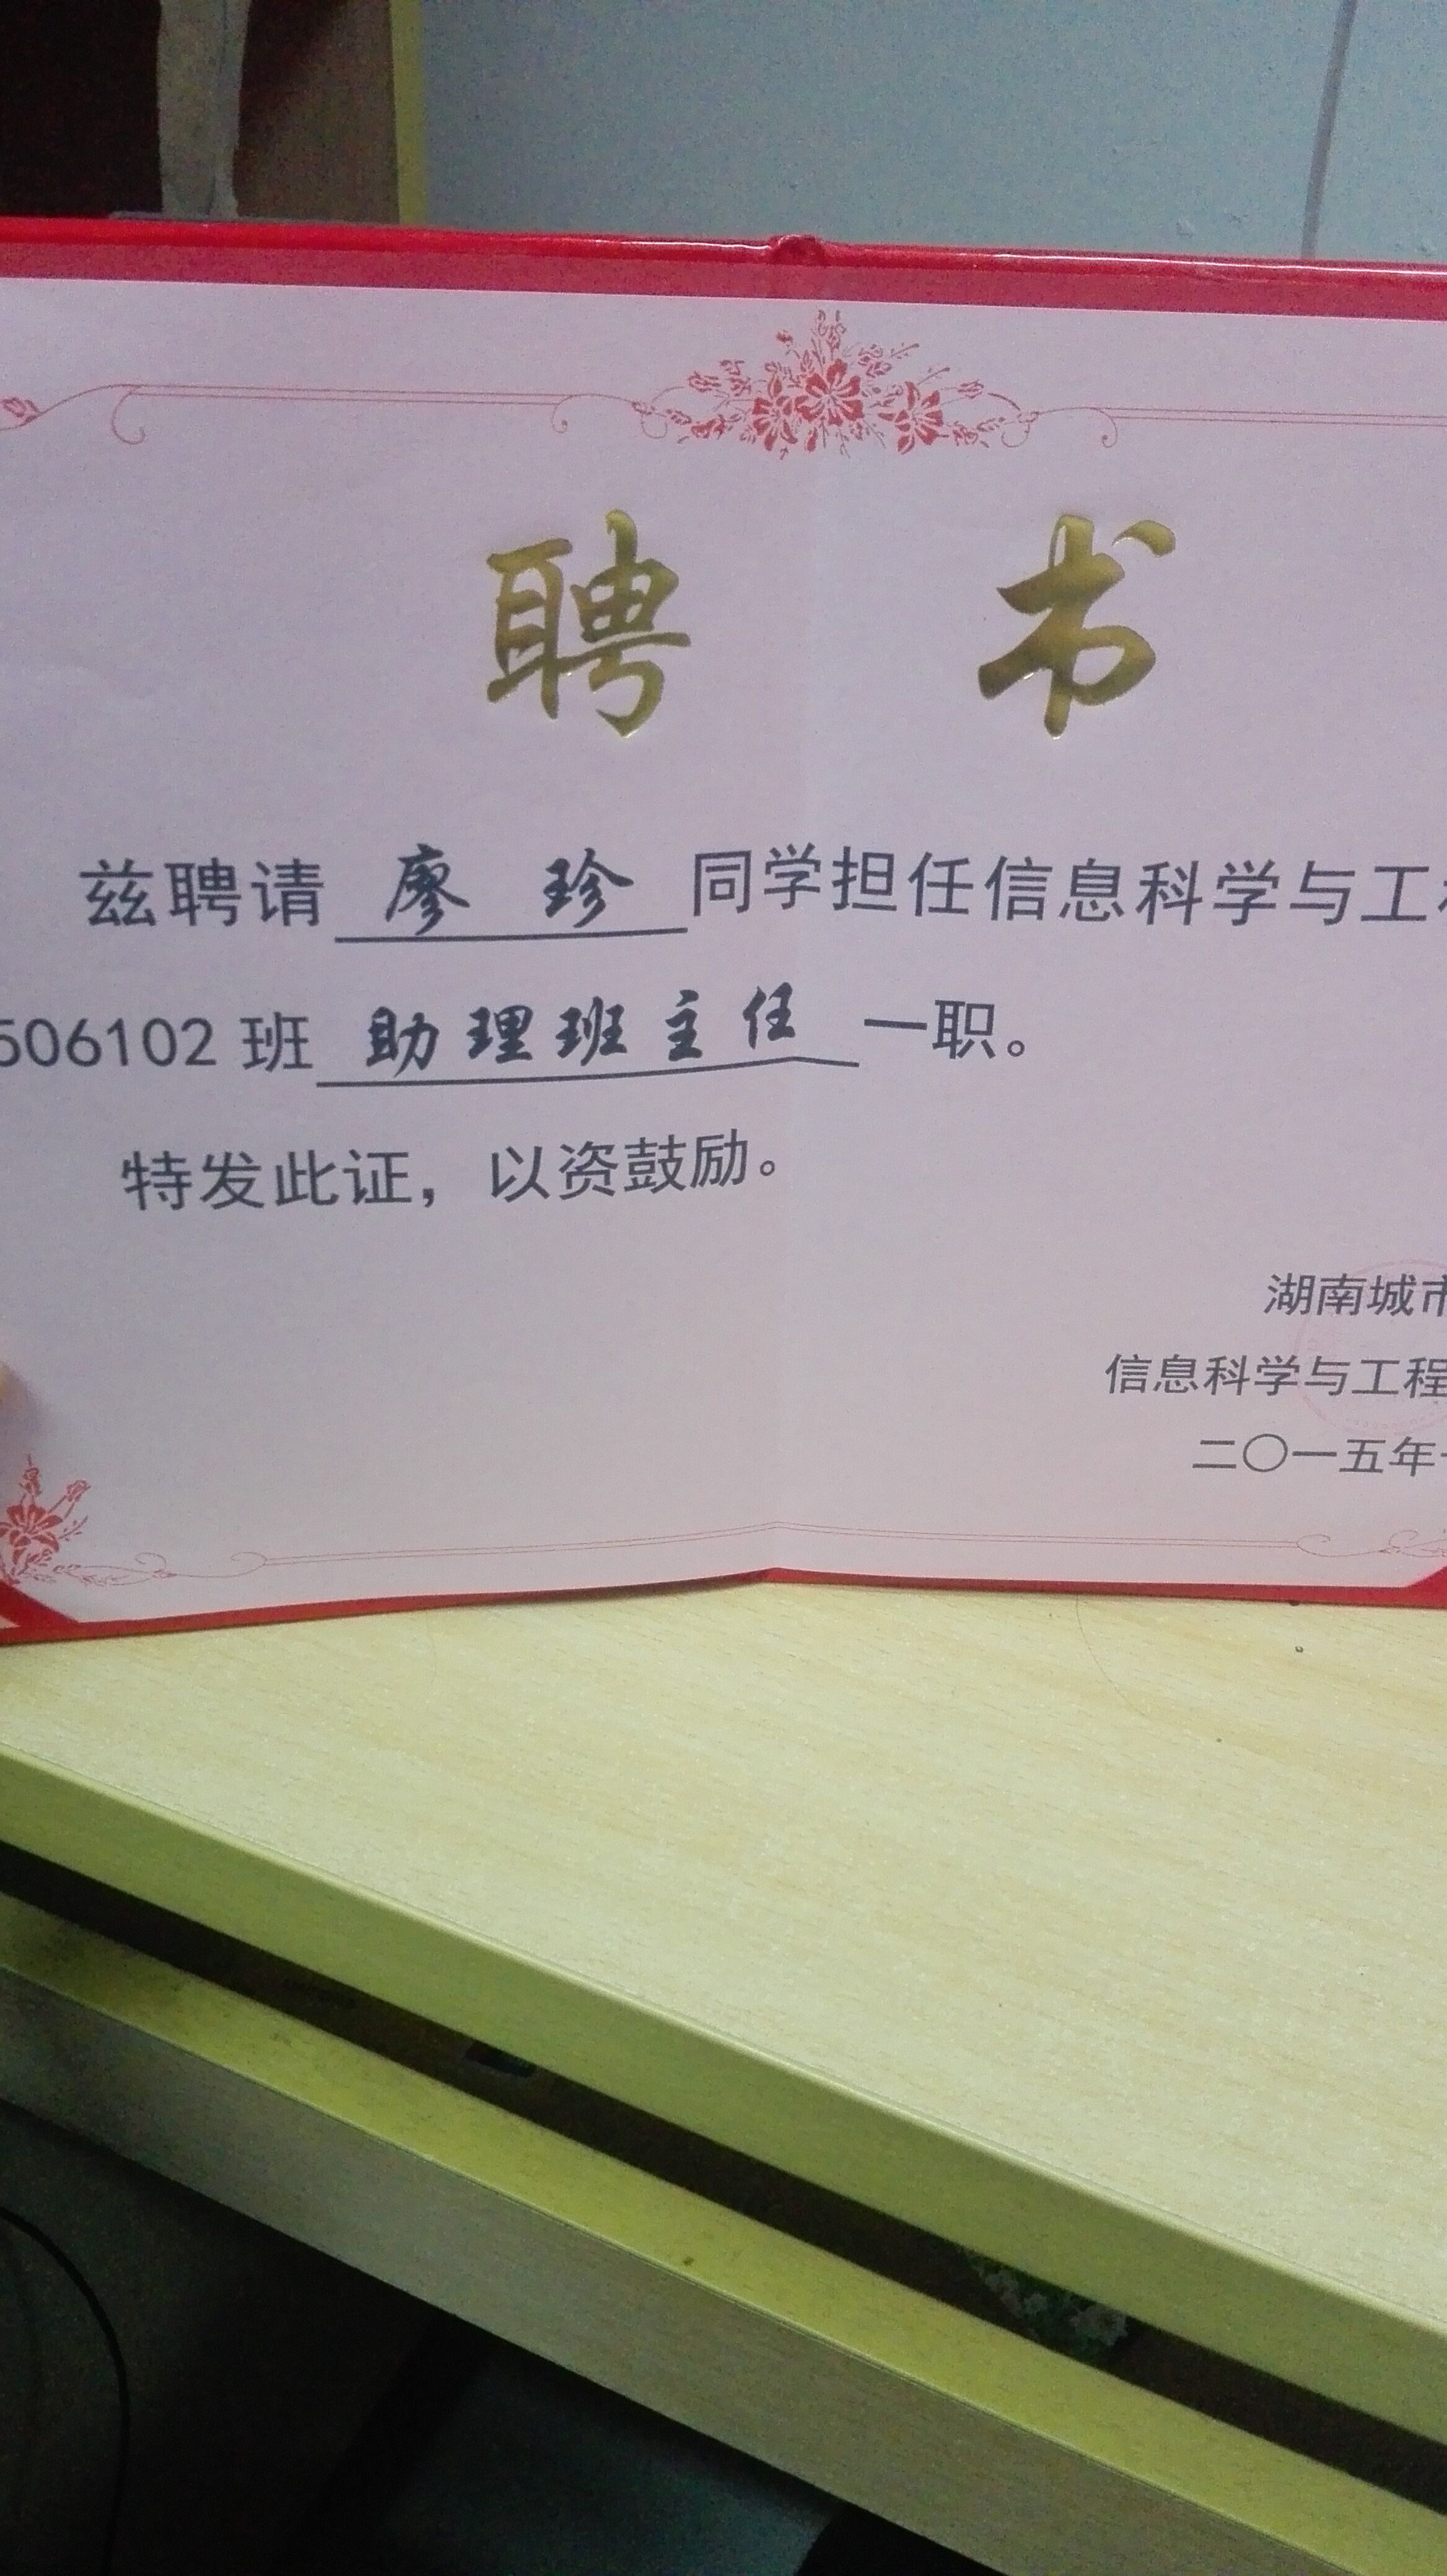 聘 书
兹聘请 廖 珍 同学担任信息科学与工
506102 班 助理班主任 一职。
特发此证，以资鼓励。
湖南城市
信息科学与工程
二〇一五年